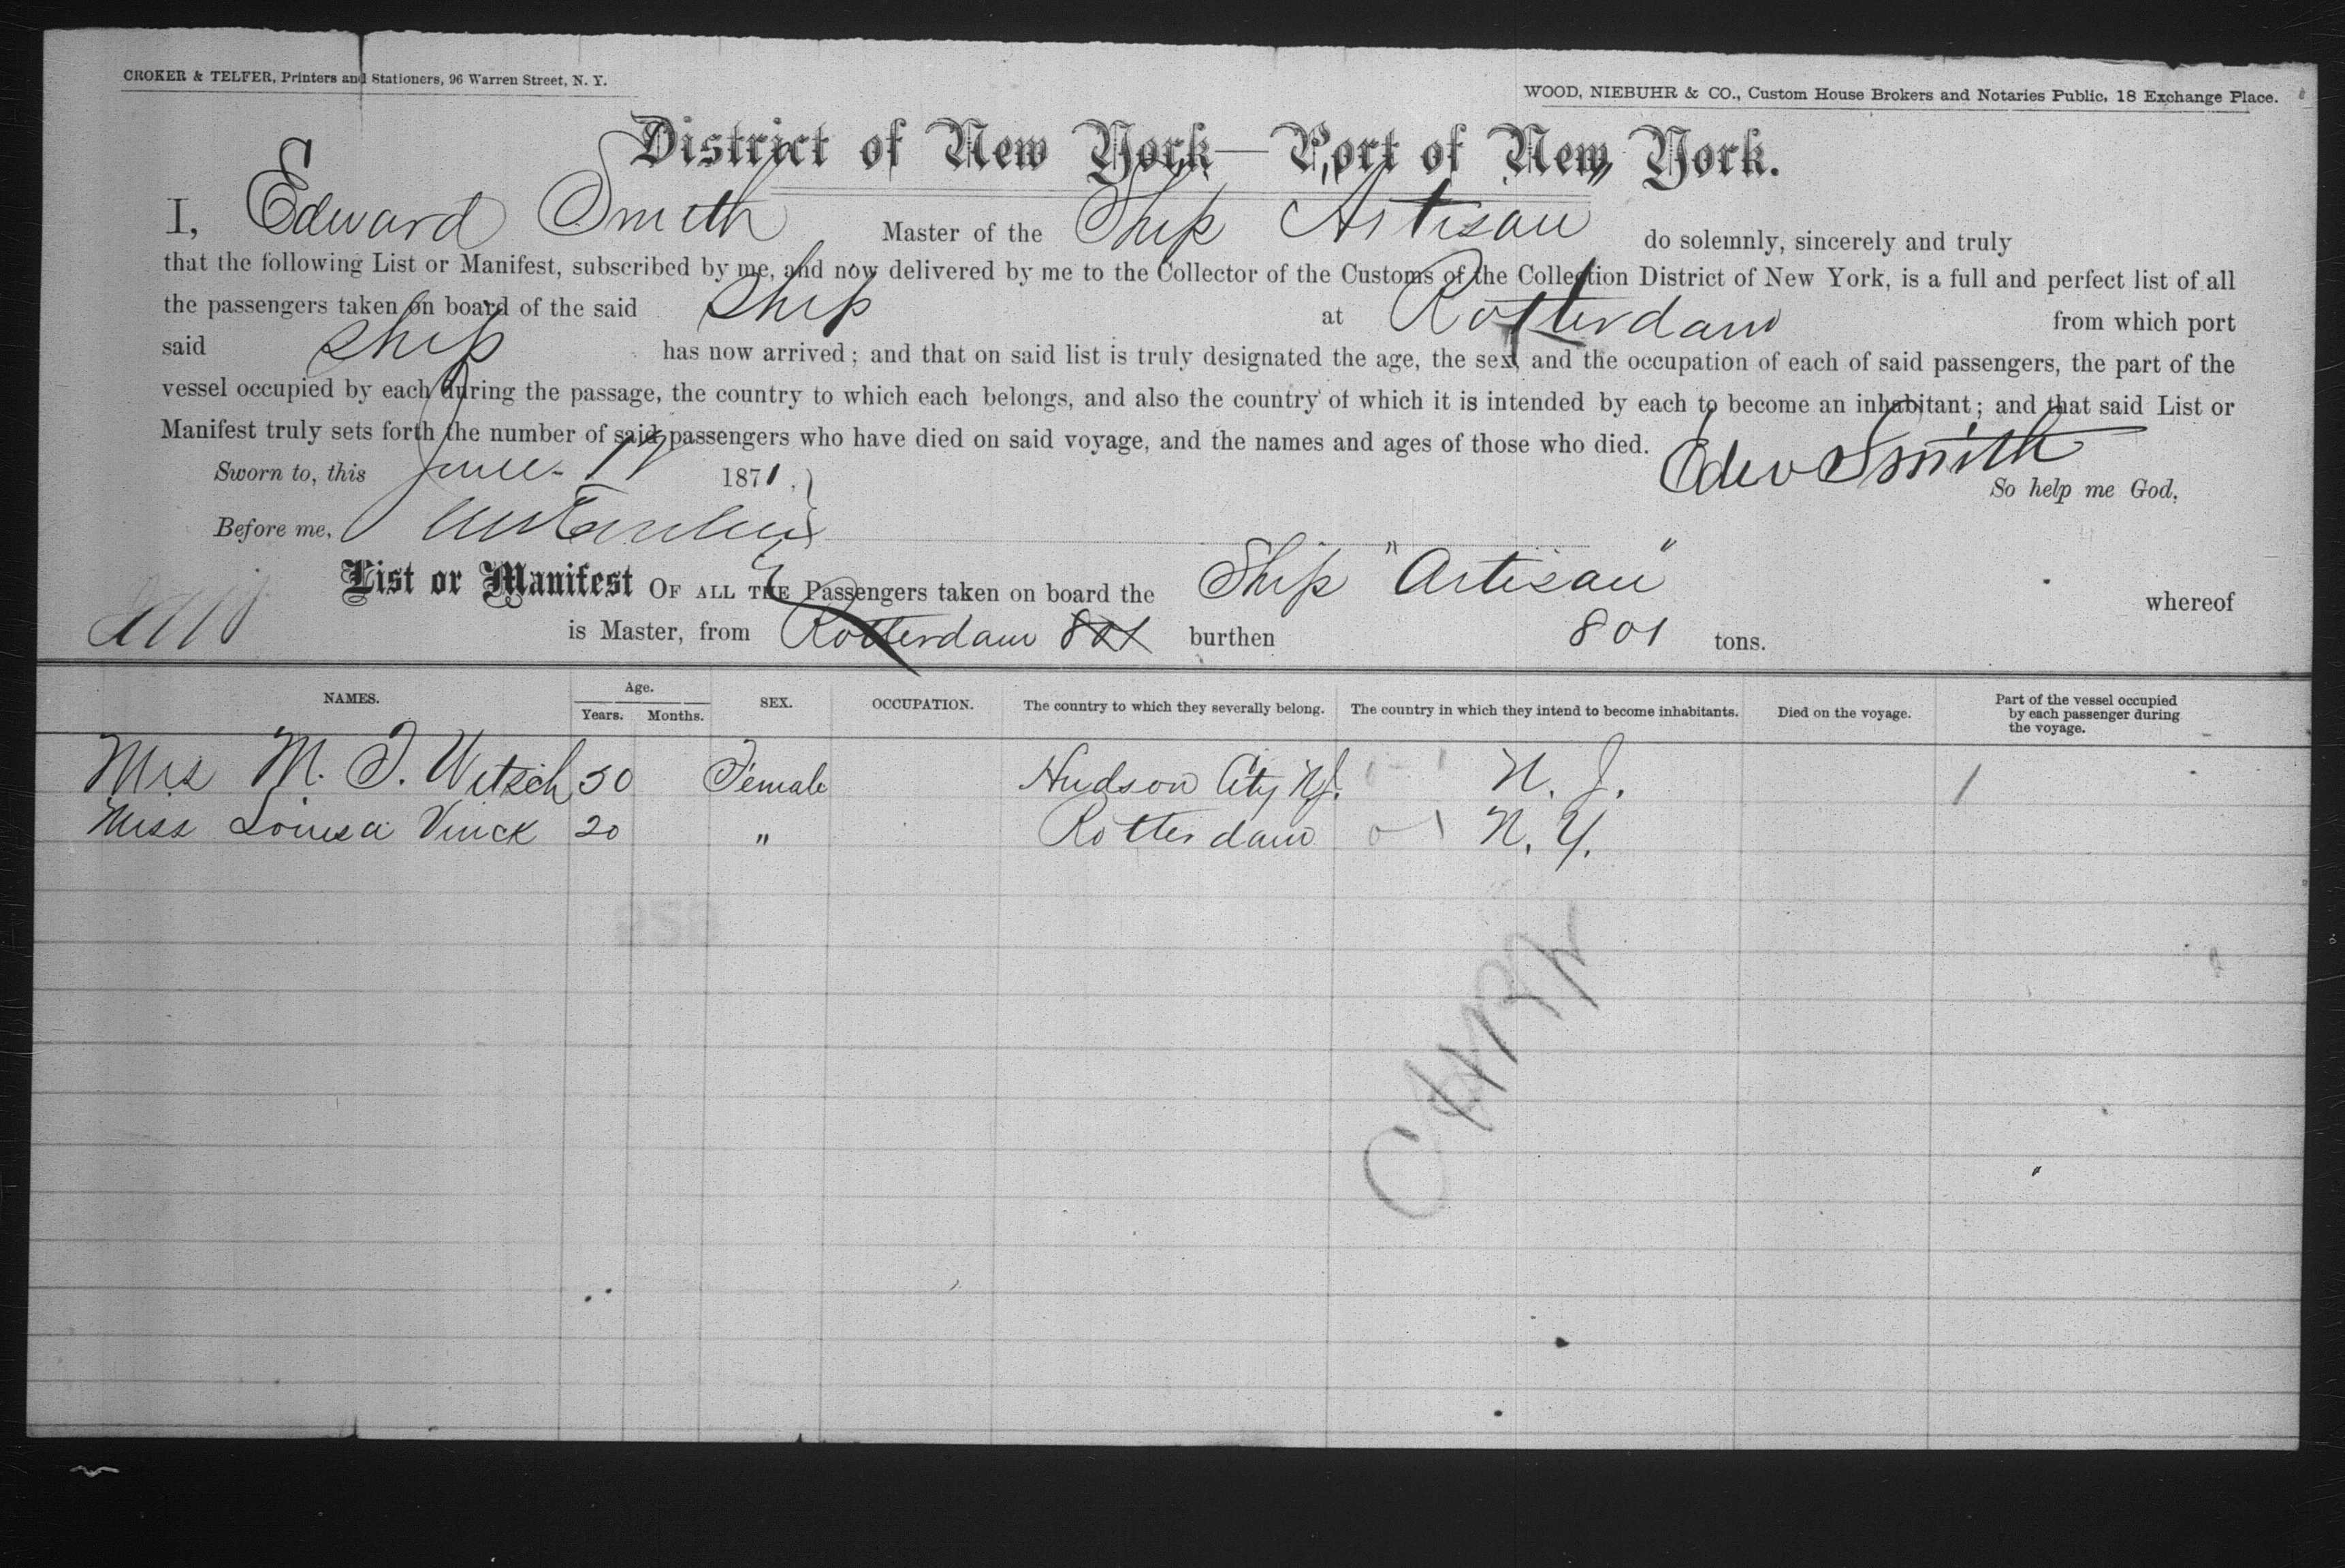 CROKER & TELFER, Printers and Stationers, 96 Warren Street, N. Y.
WOOD, NIEBUHR & CO., Custom House Brokers and Notaries Public, 18 Exchange Place.
District of New York—Port of New York.
I, Edward Smith Master of the Ship "Artisan" do solemnly, sincerely and truly
that the following List or Manifest, subscribed by me, and now delivered by me to the Collector of the Customs of the Collection District of New York, is a full and perfect list of all
the passengers taken on board of the said Ship at Rotterdam from which port
said Ship has now arrived; and that on said list is truly designated the age, the sex, and the occupation of each of said passengers, the part of the
vessel occupied by each during the passage, the country to which each belongs, and also the country of which it is intended by each to become an inhabitant; and that said List or
Manifest truly sets forth the number of said passengers who have died on said voyage, and the names and ages of those who died.
Sworn to, this June 1871. Edw Smith
So help me God,
Before me,
List or Manifest OF ALL THE Passengers taken on board the Ship "Artisan" whereof
is Master, from Rotterdam 801 burthen 801 tons.
NAMES. Age. Years. Months. SEX. OCCUPATION. The country to which they severally belong. The country in which they intend to become inhabitants. Died on the voyage. Part of the vessel occupied by each passenger during the voyage.
Mrs M. Female Hudson City N.J. N. J. /
Miss Louisa Vinck 20 " Rotterdam N. Y.